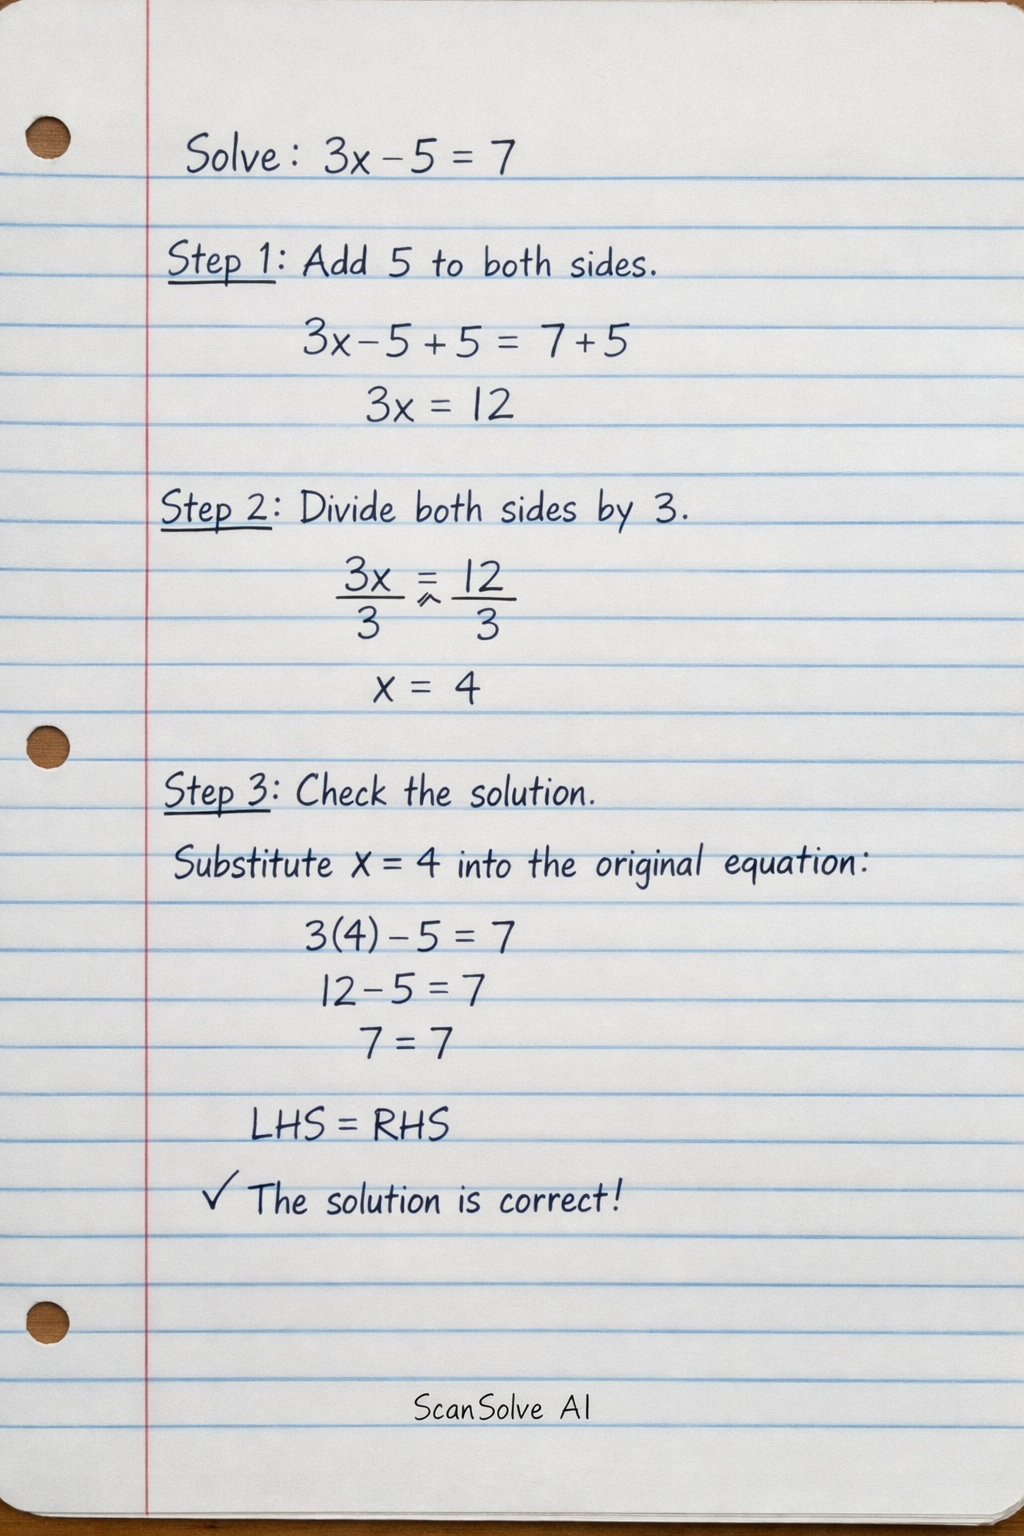 Solve: 3x - 5 = 7
Step 1: Add 5 to both sides.
3x - 5 + 5 = 7 + 5
3x = 12
Step 2: Divide both sides by 3.
3x = 12
3 3
x = 4
Step 3: Check the solution.
Substitute x = 4 into the original equation:
3(4) - 5 = 7
12 - 5 = 7
7 = 7
LHS = RHS
✓ The solution is correct!
ScanSolve AI